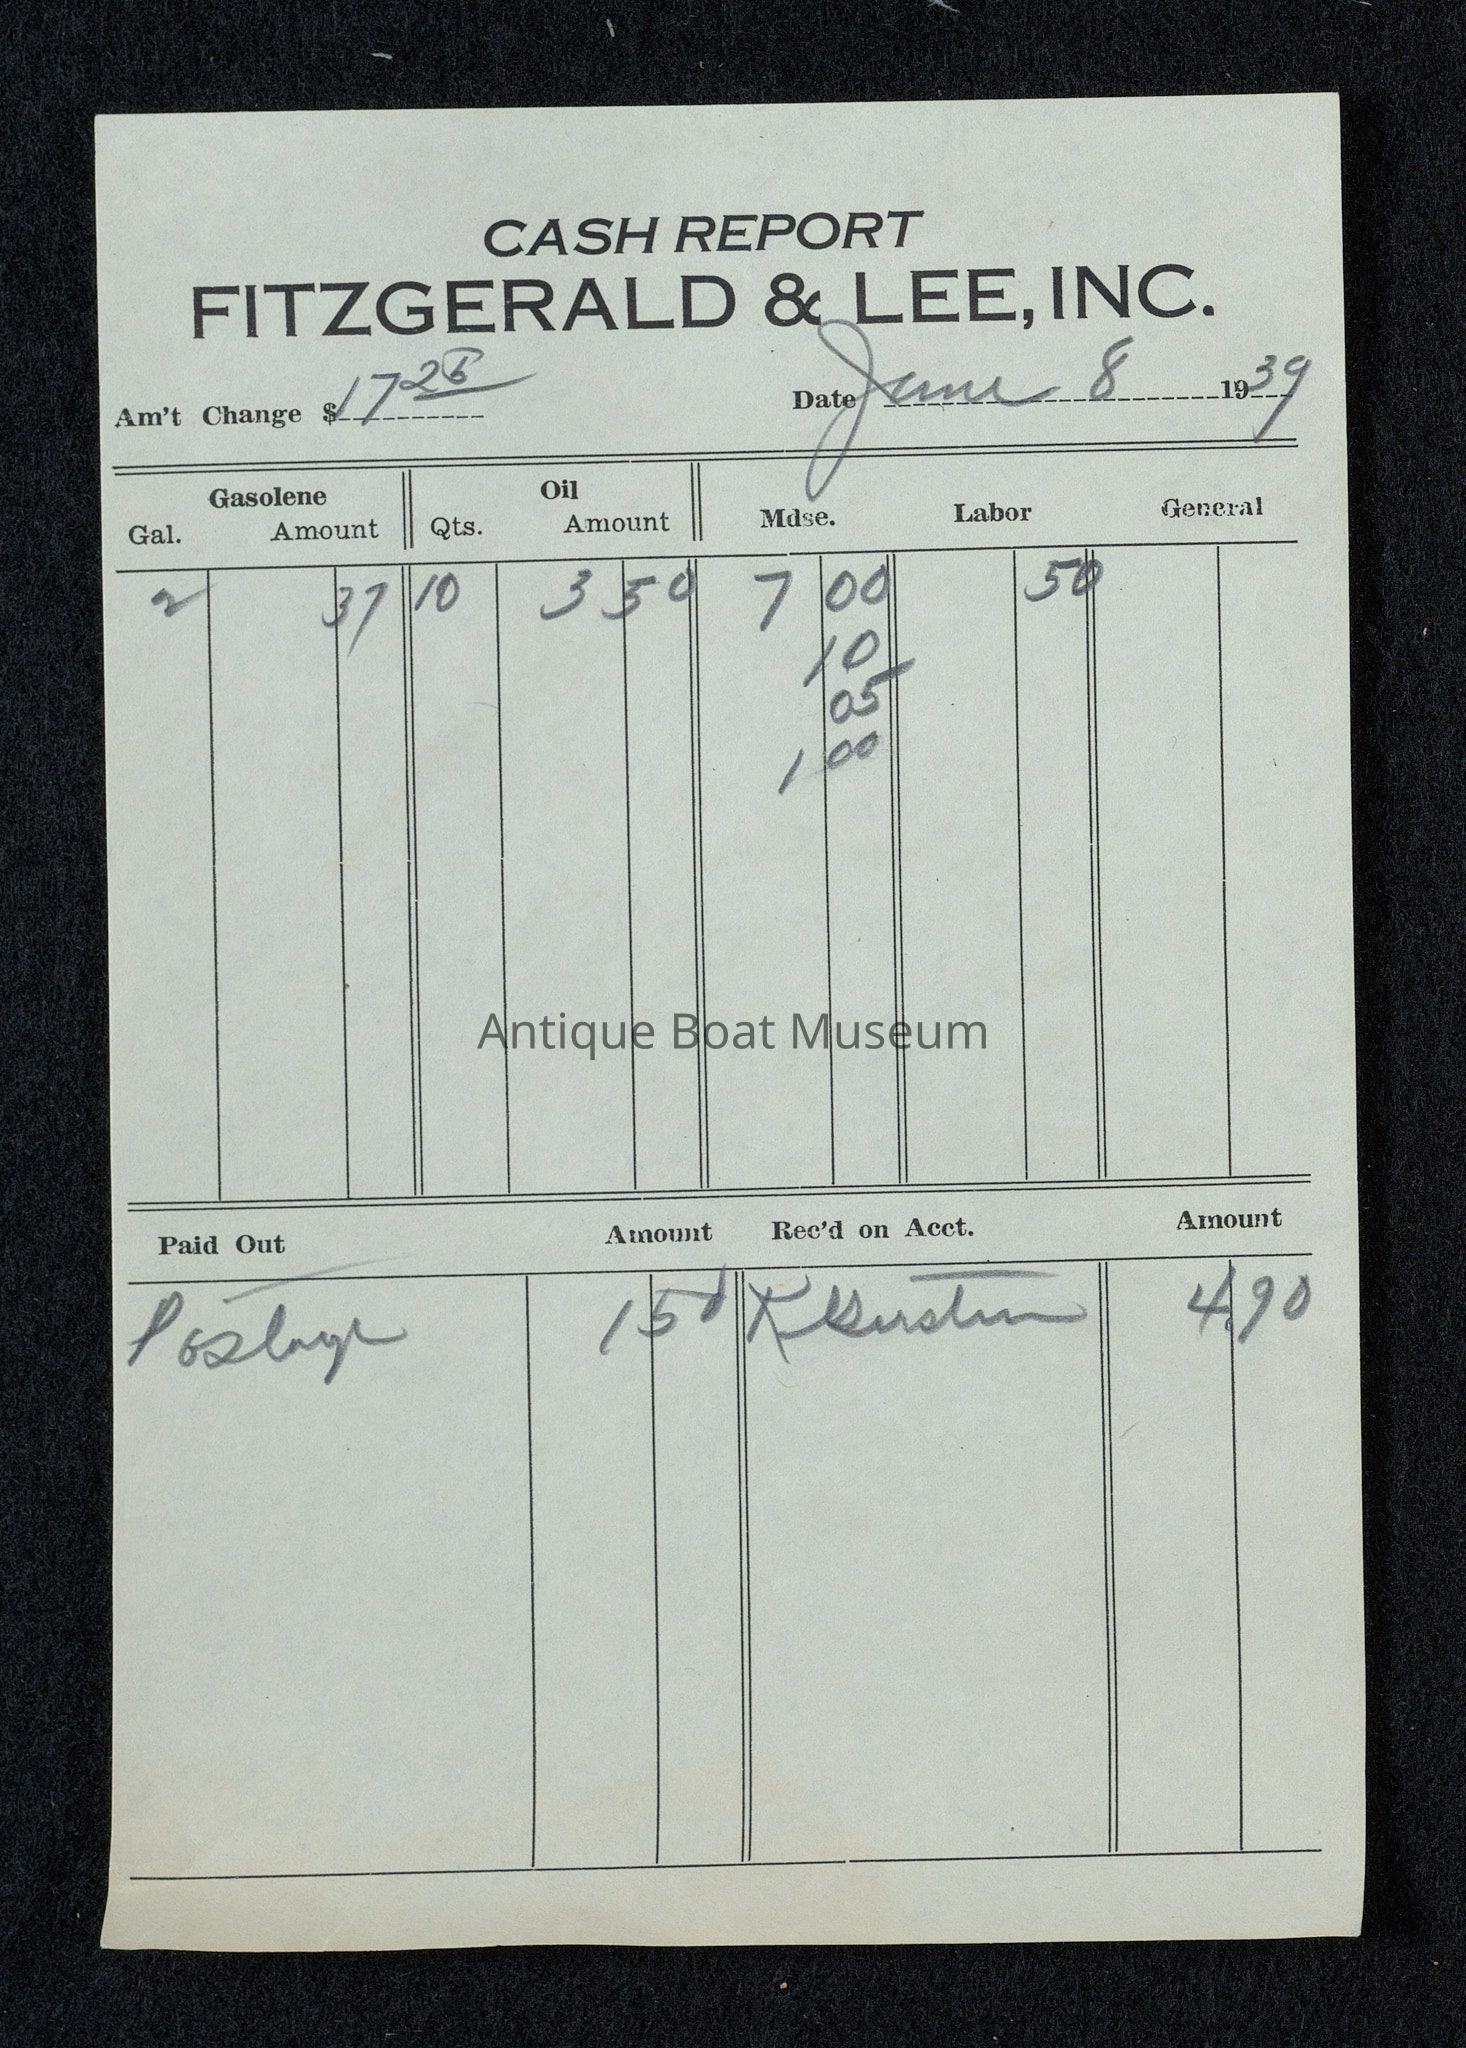 CASH REPORT
FITZGERALD & LEE, INC.
Am't Change $ 17 25 Date June 8 1939
Gasolene Oil Mdse. Labor General
Gal. Amount Qts. Amount
2 37 10 3 50 7 00 50
10
05
1 00
Antique Boat Museum
Paid Out Amount Rec'd on Acct. Amount
Postage 1 50 K 4.90